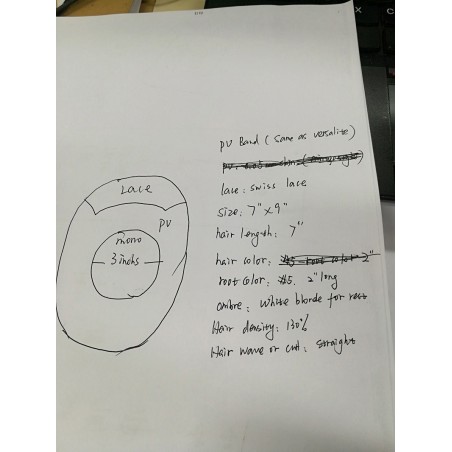 Lace
PU
mono
3 inchs
PU Band (same as versalite)
lace: swiss lace
size: 7" x 9"
hair length: 7"
hair color:
root color: #5. 2" long
ombre: white blonde for rest
Hair density: 130%
Hair wave or curl: straight